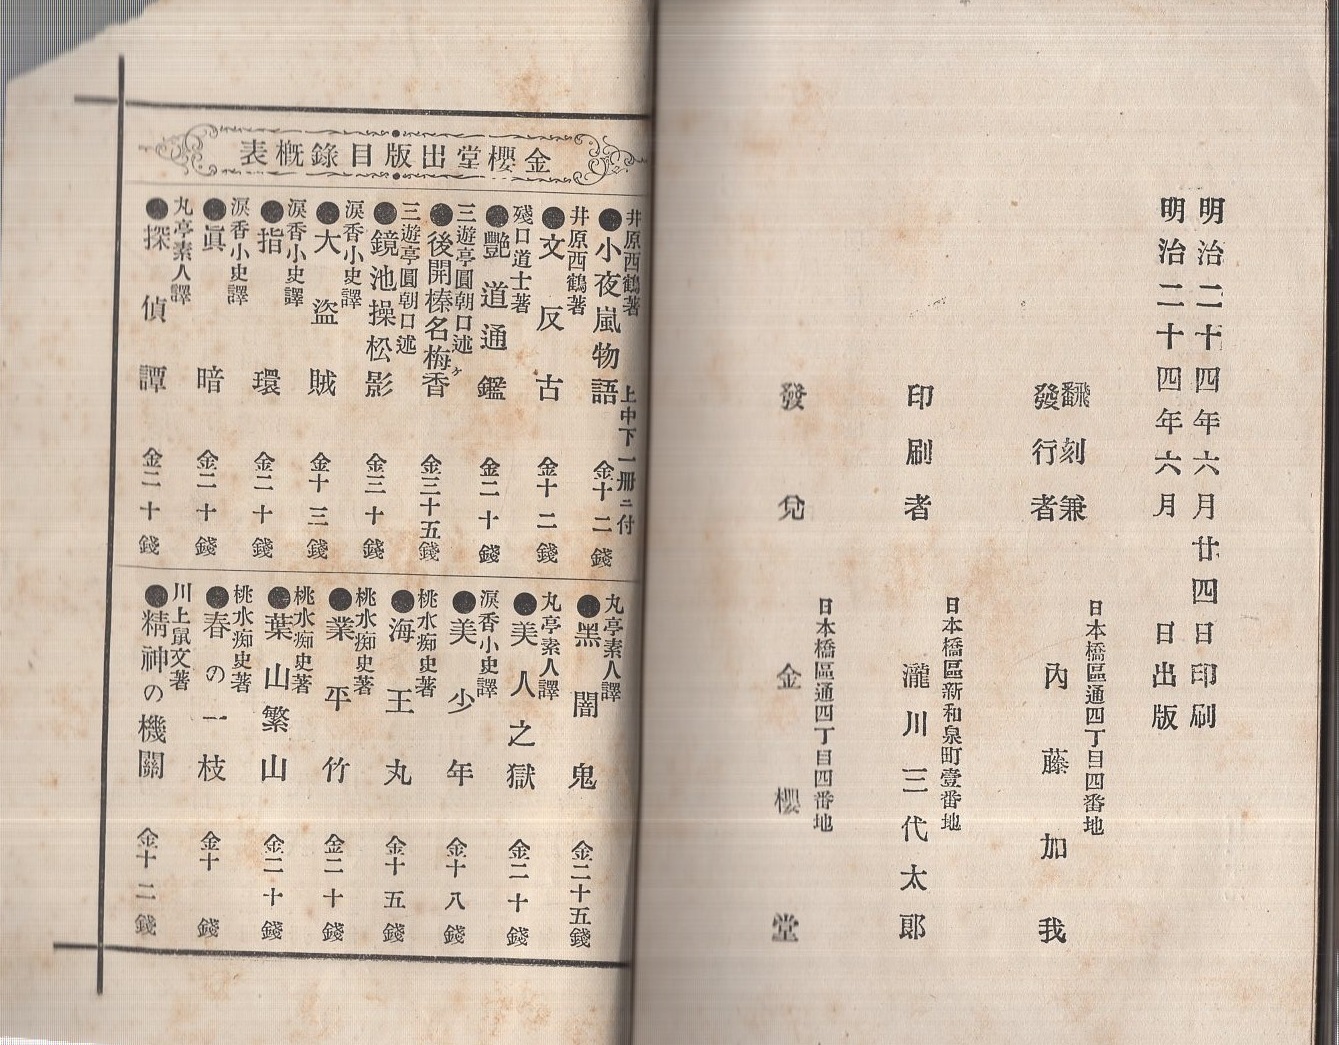 明治二十四年六月廿四日印刷
明治二十四年六月　日出版
翻刻兼
發行者
日本橋區通四丁目四番地
內藤加我
印刷者
日本橋區新和泉町壹番地
瀧川三代太郎
發兌
日本橋區通四丁目四番地
金櫻堂
金櫻堂出版目錄概表
井原西鶴著
●小夜嵐物語
上中下一冊ニ付
金十二錢
井原西鶴著
●文反古
金十二錢
殘口道士著
●艷道通鑑
金二十錢
三遊亭圓朝口述
●後開榛名梅ヶ香
金三十五錢
三遊亭圓朝口述
●鏡池操松影
金三十錢
淚香小史譯
●大盜賊
金十三錢
淚香小史譯
●指環
金二十錢
淚香小史譯
●眞暗
金二十錢
丸亭素人譯
●探偵譚
金二十錢
丸亭素人譯
●黑闇鬼
金二十五錢
丸亭素人譯
●美人之獄
金二十錢
淚香小史譯
●美少年
金十八錢
桃水痴史著
●海王丸
金十五錢
桃水痴史著
●業平竹
金二十錢
桃水痴史著
●葉山繁山
金二十錢
桃水痴史著
●春の一枝
金十錢
川上鼠文著
●精神の機關
金十二錢